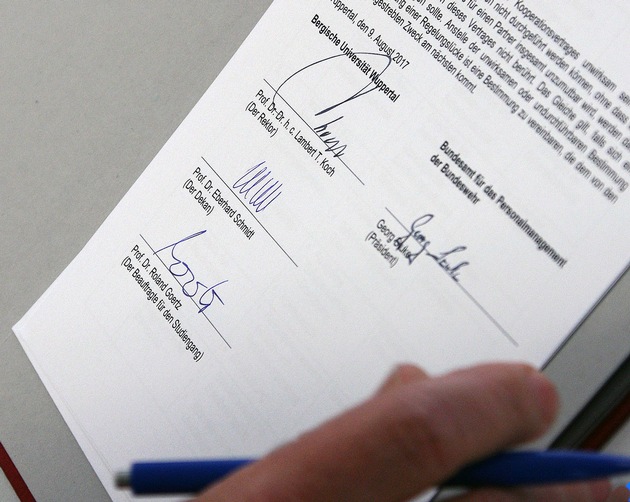 Kooperationsvertrages unwirksam
nicht durchgeführt werden können, ohne dass
für einen Partner insgesamt unzumutbar wird, werden
dieses Vertrages nicht berührt. Das Gleiche gilt, falls sich
sollte. Anstelle der unwirksamen oder undurchführbaren Bestimmung
einer Regelungslücke ist eine Bestimmung zu vereinbaren, die dem von den
angestrebten Zweck am nächsten kommt.
Wuppertal, den 9. August 2017
Bergische Universität Wuppertal
Prof. Dr. Dr. h. c. Lambert T. Koch
(Der Rektor)
Prof. Dr. Eberhard Schmidt
(Der Dekan)
Prof. Dr. Roland Goertz
(Der Beauftragte für den Studiengang)
Bundesamt für das Personalmanagement
der Bundeswehr
Georg
(Präsident)